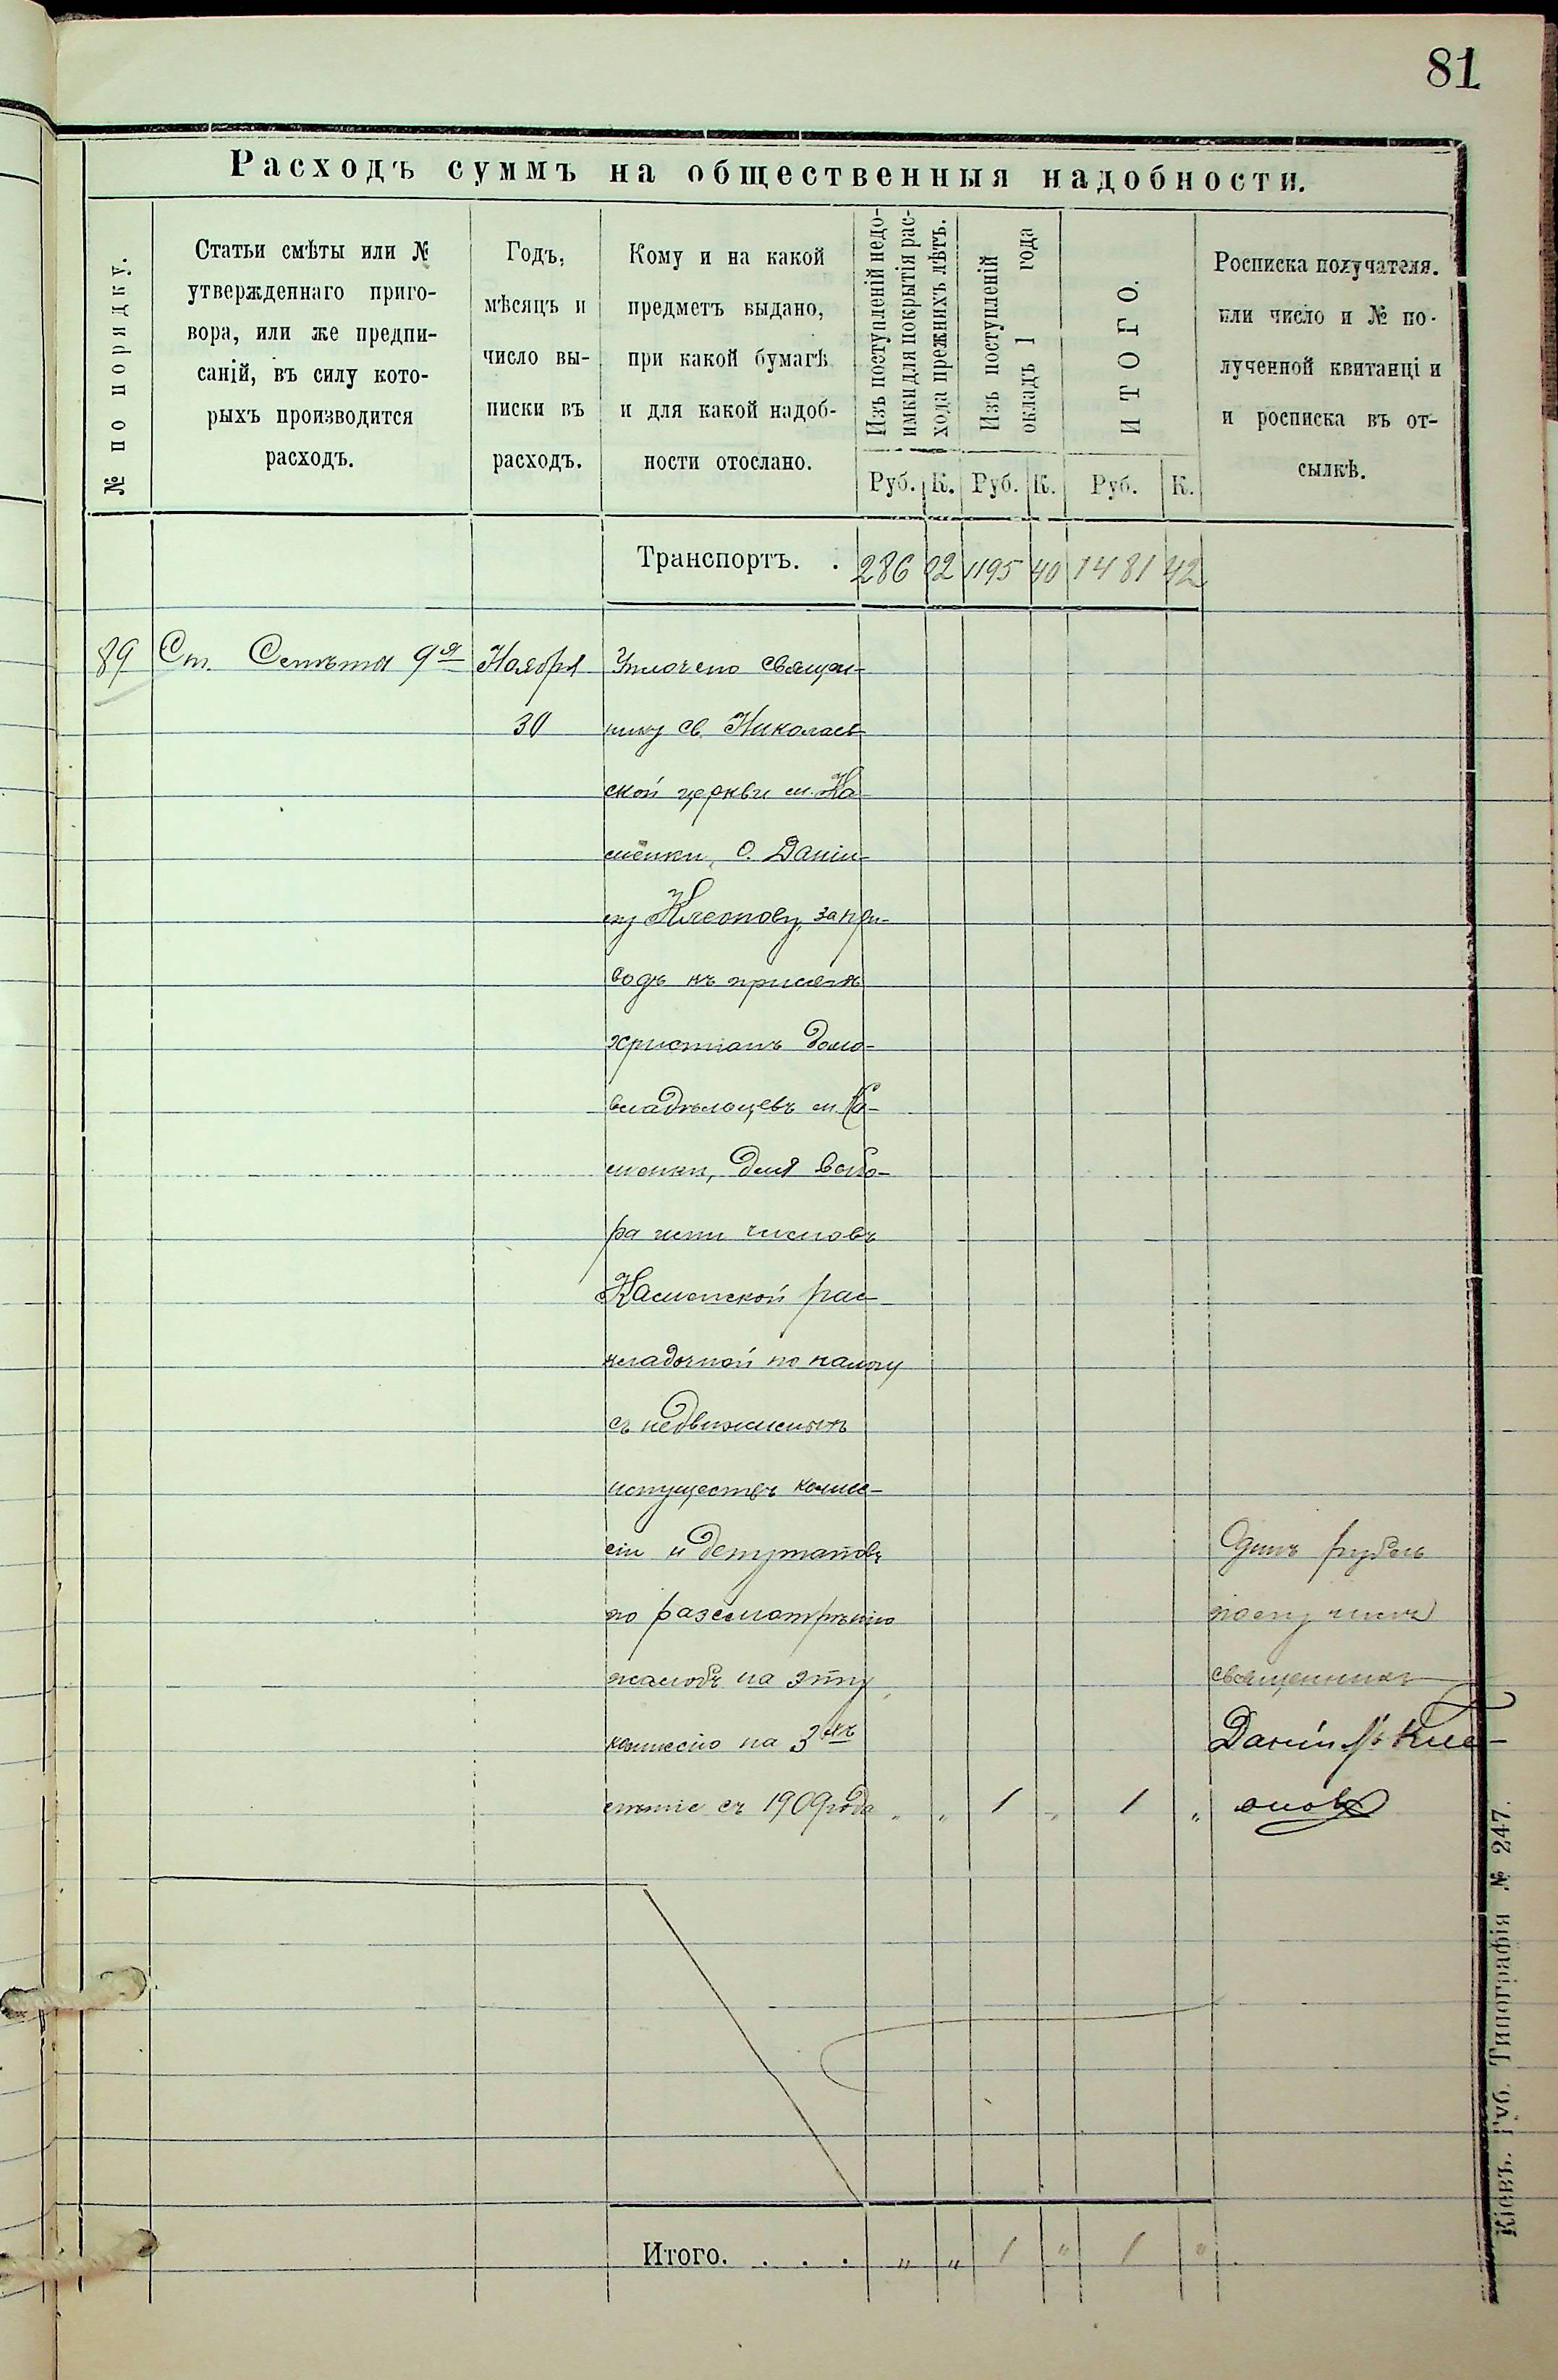 81
Расходъ суммъ на общественныя надобности.
№ по порядку.
Статьи смѣты или №
утвержденнаго приго-
вора, или же предпи-
саній, въ силу кото-
рыхъ производится
расходъ.
Годъ,
мѣсяцъ и
число вы-
писки въ
расходъ.
Кому и на какой
предметъ выдано,
при какой бумагѣ
и для какой надоб-
ности отослано.
Изъ поступленій недо-
имки для покрытія рас-
хода прежнихъ лѣтъ.
Изъ поступленій
окладъ 1 года
ИТОГО.
Росписка получателя.
или число и № по-
лученной квитанціи
и росписка въ от-
сылкѣ.
Руб. К. Руб. К. Руб. К.
Транспортъ. . 286 02 1195 40 1481 42
89 Ст. Смѣты 9я Ноября Уплочено священ-
30 нику св. Николаев-
ской церкви м. Ка-
менки, О. Даніи-
лу Клеопову, за при-
водъ къ присягѣ
христіанъ домо-
владѣльцевъ м. Ка-
менки, для выбо-
ра членовъ
Каменской рас-
кладочной по налогу
съ недвижимыхъ
имуществъ комис-
сіи и депутатовъ Одинъ рубль
по разсмотрѣнію получилъ
жалобъ на эту священникъ
комиссію на 3хъ Даніилъ Кле-
лѣтіе съ 1909 года „ „ 1 „ 1 „ оповъ
Итого. . . . „ „ 1 „ 1 „
Кіевъ. Губ. Типографія № 247.